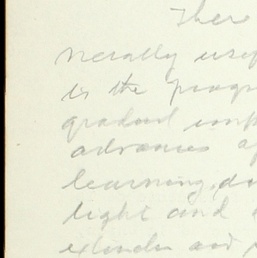 There
nerally usef
is the progr
gradual imp
advances of
learning, do
light and
extender and